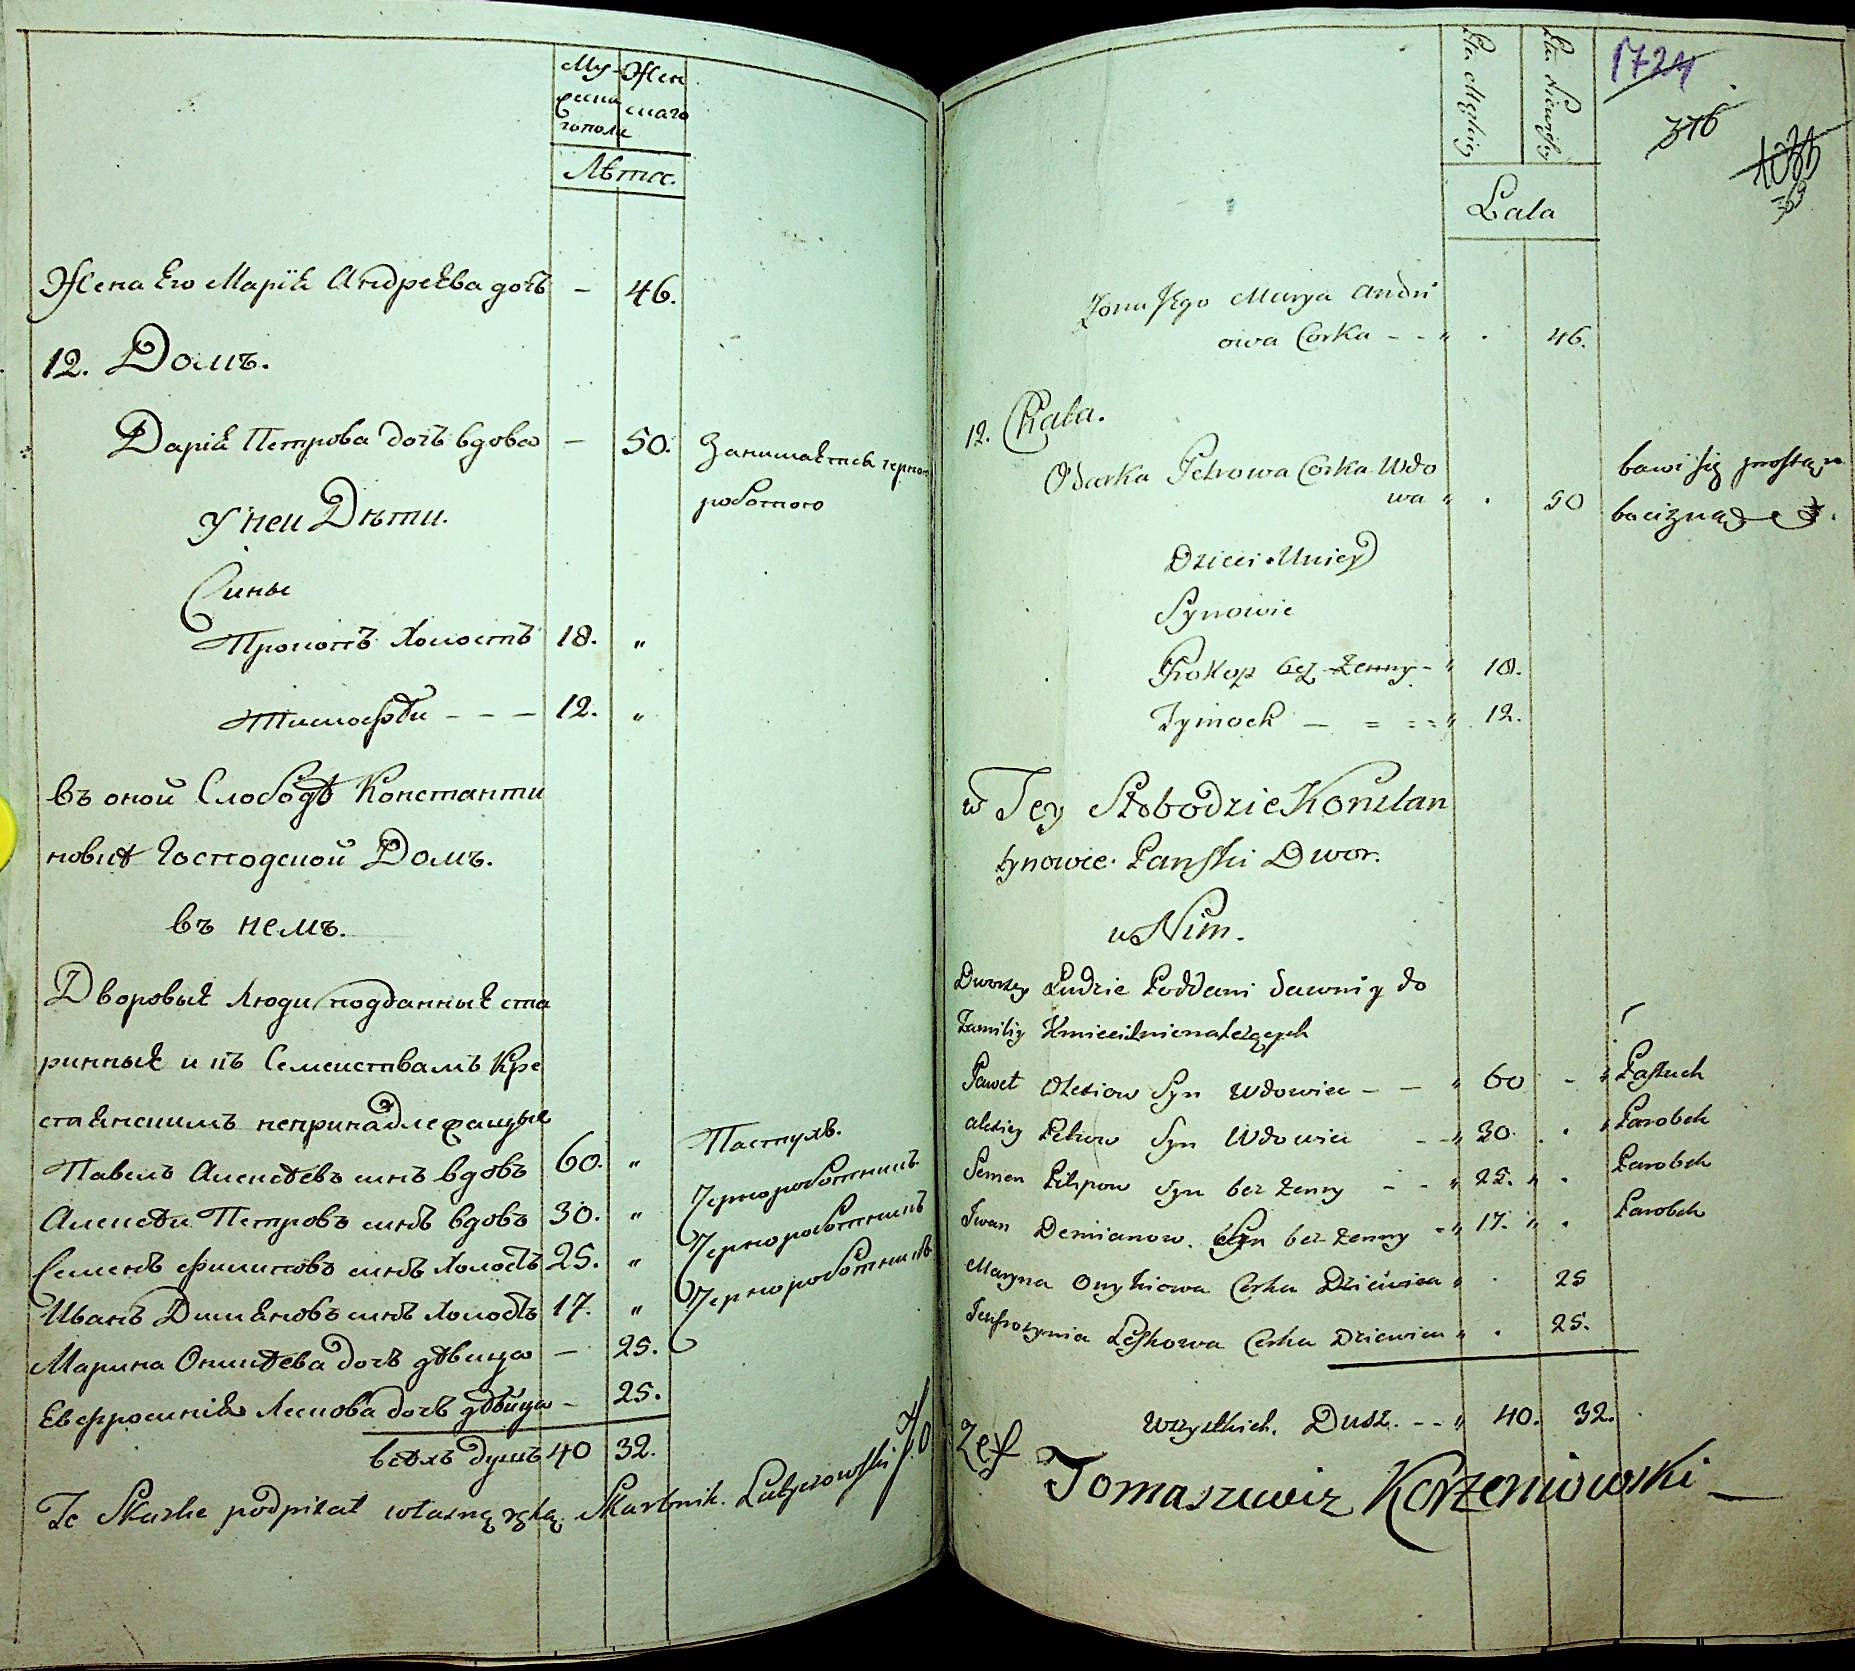 Му
жеска
го пола
Жен
скаго
Лѣта.
Жена Его Маріѣ Андрѣева дочь – 46.
12. Домъ.
Даріѣ Петрова дочь вдова – 50. Занимаѣтся черною
работою
У неи Дѣти.
Сины
Прокопъ Холостъ 18. „
Тимофѣи – – – 12. „
въ оной Слободѣ Константи
новкѣ Господской Домъ.
въ немъ.
Дворовыѣ Люди подданныѣ ста
ринныѣ и къ Семеиствамъ Кре
стѣнскимъ непринадлежащые
Павелъ Алексѣевъ синъ вдовъ 60. „ Пастухъ.
Алексѣи Петровъ синъ вдовъ 30. „ Чернороботникъ
Семенъ Филиповъ синъ Холостъ 25. „ Чернороботникъ
Иванъ Димѣновъ синъ Холостъ 17. „ Чернороботникъ
Марина Оникѣева дочь дѣвица – 25.
Евфросиніѣ Лескова дочь дѣвица – 25.
всѣхъ душъ 40 32.
Tę Skazkę podpisał własną ręką Skarbnik.
1724
376
Lata
Żona Jego Marya Andri
owa Corka - - „ . 46.
12. Chata.
Odarka Petrowa Corka Wdo
wa „ . 50
bawi się prostą ro
bocizną
Dzieci u Niey
Synowie
Prokop bez Żenny - „ 18.
Tymoch – = = = „ 12.
w Tey Słobodzie Konstan
tynowie Pański Dwor.
w Nim.
Dworscy Ludzie Poddani dawni y do
Familiy Kmieci nienależących
Paweł Olexiow Syn Wdowiec – – „ 60 - „ Pastuch
Alexiey Petrow Syn Wdowiec - - „ 30. . . „ Parobek
Semen Pilipow Syn bez Żenny - - „ 25. „ . Parobek
Iwan Demianow. Syn bez Żenny - „ 17. „ . Parobek
Maryna Onykiowa Corka Dziewica „ . 25
Jeufrozynia Leskowa Corka Dziewica „ . 25.
Wszystkich. Dusz. - - „ 40. 32.
Tomaszewicz Korzeniowski –